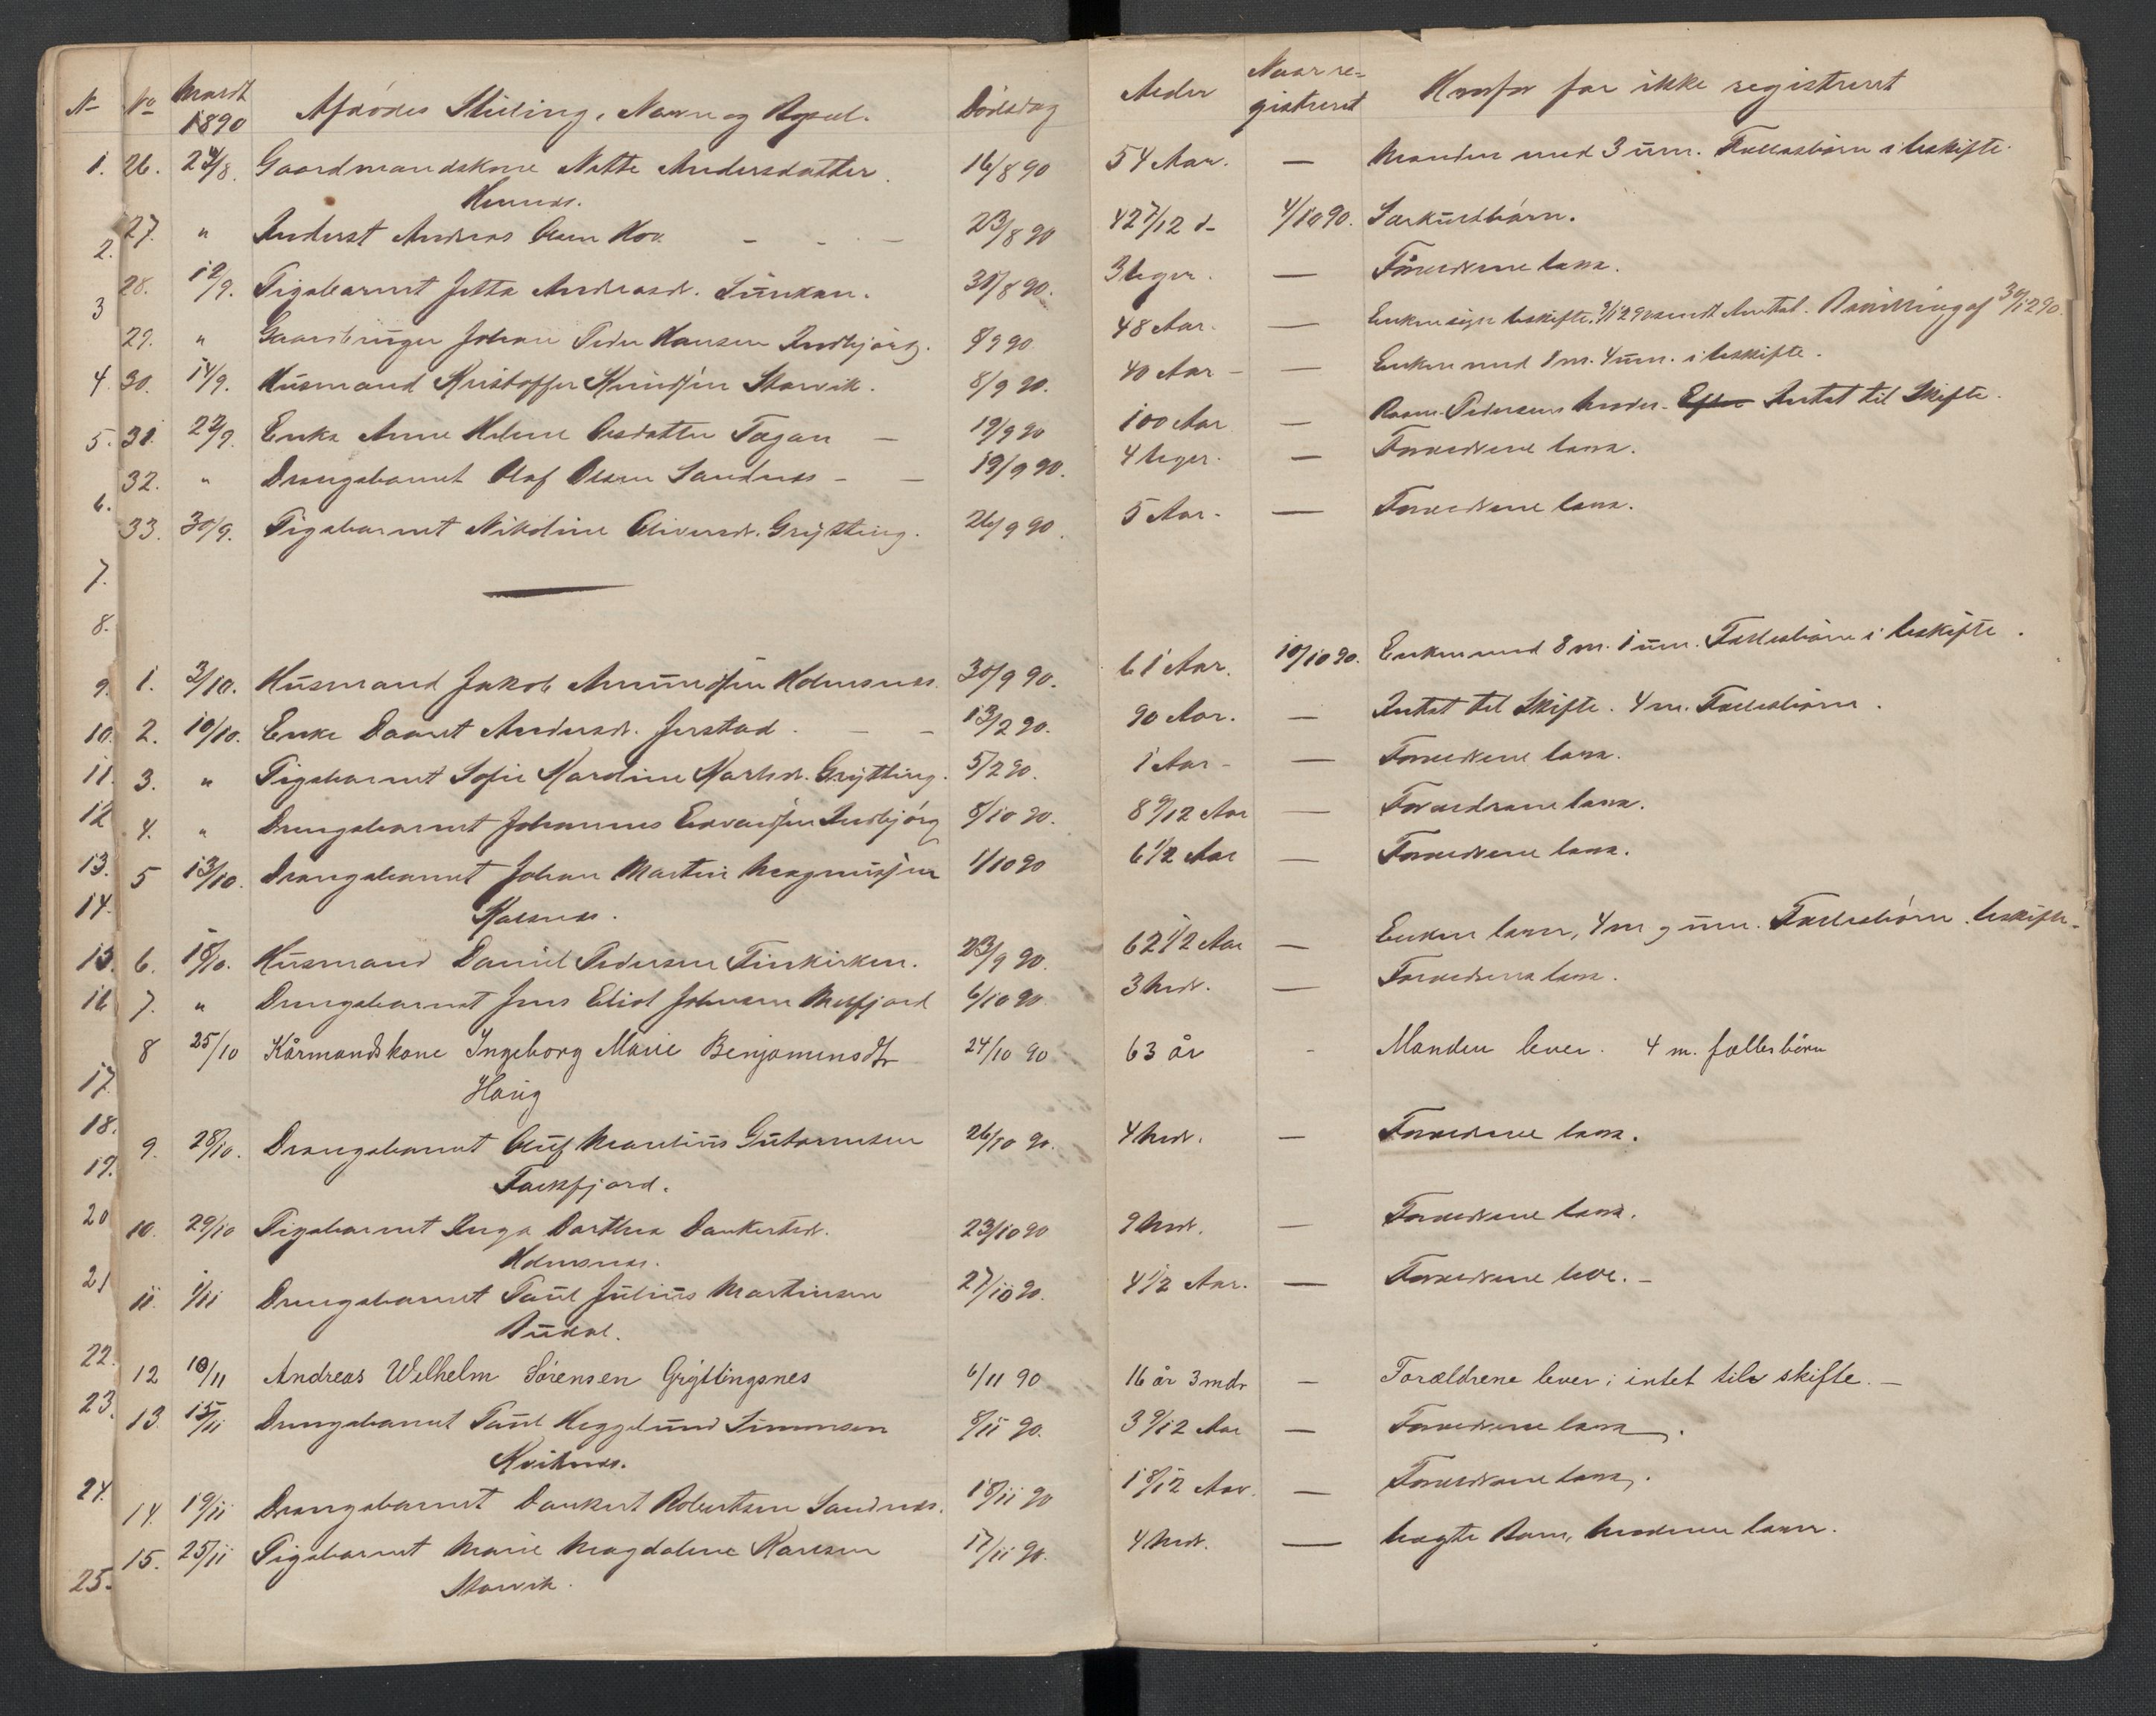 No No Anmeldt 1890 Afdødes Stilling, Navn og Bopæl. Dødsdag Alder Naar registreret Hvorfor ikke registreret
1. 26. 24/8. Gaardmandskone Nette Andersdatter 16/8 90 54 Aar. — Manden med 3 um. Fællesbörn i Uskifte.
2. 27. " Inderst Andreas Olsen Hov. - - — 23/8 90 42 7/12 d- 4/10 90. Særkuldbörn.
28. 12/9. Pigebarnet Jetta Andreasdr. 31/8 90. 3 Uger. — Forældrene leve.
3 29. " Gaardbruger Johan Peder Hansen Indbjörg. 8/9 90 48 Aar. — Enken i Uskifte.
4. 30. 14/9. Husmand Kristoffer Knudsen Storvik. 8/9 90. 40 Aar - — Enken med 1 m. 4 um. i Uskifte.
5. 31. 22/9. Enke Anne Helene Olsdatter — 19/9 90 100 Aar — Intet til Skifte.
6. 32. " Drengebarnet Olaf Olsen Sandnes - — 19/9 90. 4 Uger. — Forældrene leve.
33. 30/9. Pigebarnet Nikoline Oliversdr. Grytting. 26/9 90. 5 Aar - — Forældrene leve.
7.
8.
9. 1. 3/10. Husmand Jakob Amundsen Holmenes. 30/9 90. 61 Aar. 10/10 90. Enken med 8 m. 1 um. Fællesbörn i Uskifte.
10. 2. 10/10. Enke Daaret Andersdr. Jerstad. — - 13/2 90. 90 Aar. — Intet til Skifte. 4 m. Fællesbörn.
11. 3. " Pigebarnet Sofie Karoline Karlsdr. Grytting. 5/2 90. 1 Aar - — Forældrene leve.
12 4. " Drengebarnet Johannes Edvardsen Indbjörg 8/10 90. 8 9/12 Aar — Forældrene leve.
13. 5 13/10. Drengebarnet Johan Martin Magnussen 1/10 90 6 1/2 Aar — Forældrene leve.
14. Kalsnes.
15. 6. 18/10. Husmand Daniel Pedersen Finkirken. 23/9 90. 62 1/2 Aar — Enken lever, 4 m og um. Fællesbörn. Uskifte.
16 7. " Drengebarnet Jens Eliot Johnsen Mefjord 6/10 90. 3 Mdr. — Forældrene leve.
8 25/10 Kårmandskone Ingeborg Marie Benjaminsdtr 24/10 90 63 år - Manden lever. 4 m. fællesbörn
17. Haug
18. 9. 28/10. Drengebarnet Oluf Martinus Guttormsen 26/10 90. 4 Mdr. — Forældrene leve.
19. Torskfjord.
20 10. 29/10 Pigebarnet Inga Dorthea Dankertsdr. 23/10 90 9 Mdr. — Forældrene leve.
Holmenes.
21 11. 1/11 Drengebarnet Paul Julius Martinsen 27/10 90. 4 1/2 Aar. — Forældrene leve. -
22. 12 10/11 Andreas Wilhelm Sörensen Grytlingsnes 6/11 90 16 år 3 mdr - Forældrene lever; intet til skifte. —
23. 13. 15/11 Drengebarnet Paul Heggelund Simonsen 8/11 90. 3 9/12 Aar — Forældrene leve.
Kviknes.
24. 14. 19/11 Drengebarnet Dankert Robertsen Sandnes. 18/11 90 1 8/12 Aar. — Forældrene leve.
15. 25/11 Pigebarnet Marie Magdalene Karlsen 17/11 90. 4 Mdr. — Uægte Barn, Moderen lever.
25. Storvik.